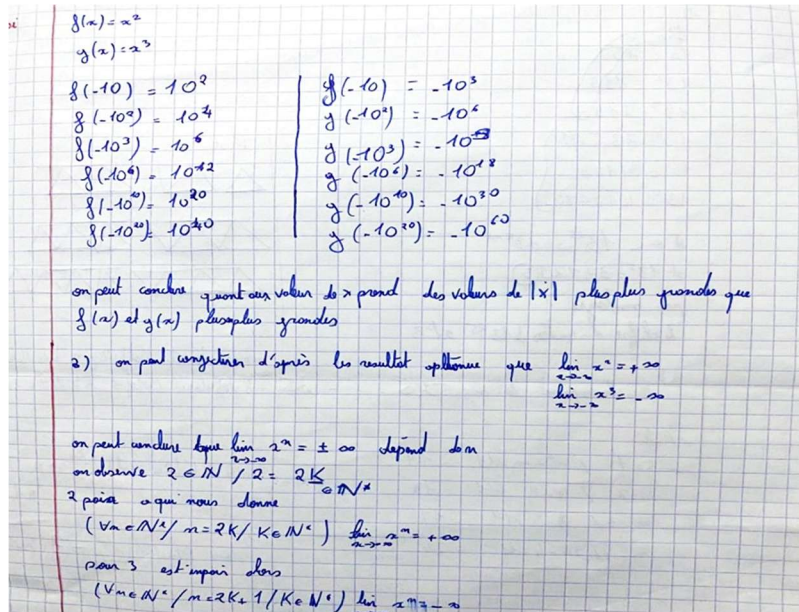 f(x) = x²
g(x) = x³
f(-10) = 10² | g(-10) = -10³
f(-10²) = 10⁴ | g(-10²) = -10⁶
f(-10³) = 10⁶ | g(-10³) = -10
f(-10⁶) = 10¹² | g(-10⁶) = -10¹⁸
f(-10¹⁰) = 10²⁰ | g(-10¹⁰) = -10³⁰
f(-10²⁰) = 10⁴⁰ | g(-10²⁰) = -10⁶⁰
on peut conclure quant aux valeur de x prend des valeurs de |x| plus plus grandes que
f(x) et g(x) plus plus grandes
2) on peut conjecturer d'après les resultat que lim x² = +∞
x→-∞
lim x³ = -∞
x→-∞
on peut conclure que lim xⁿ = ± ∞ dépend
x→-∞
on observe 2 ∈ ℕ / 2 = 2K
∈ ℕ*
2 qui nous donne
(∀n ∈ ℕ* / n = 2K / K ∈ ℕ*) lim xⁿ = +∞
x→-∞
pour 3 est impair alors
(∀n ∈ ℕ* / n = 2K + 1 / K ∈ ℕ*) lim xⁿ = -∞